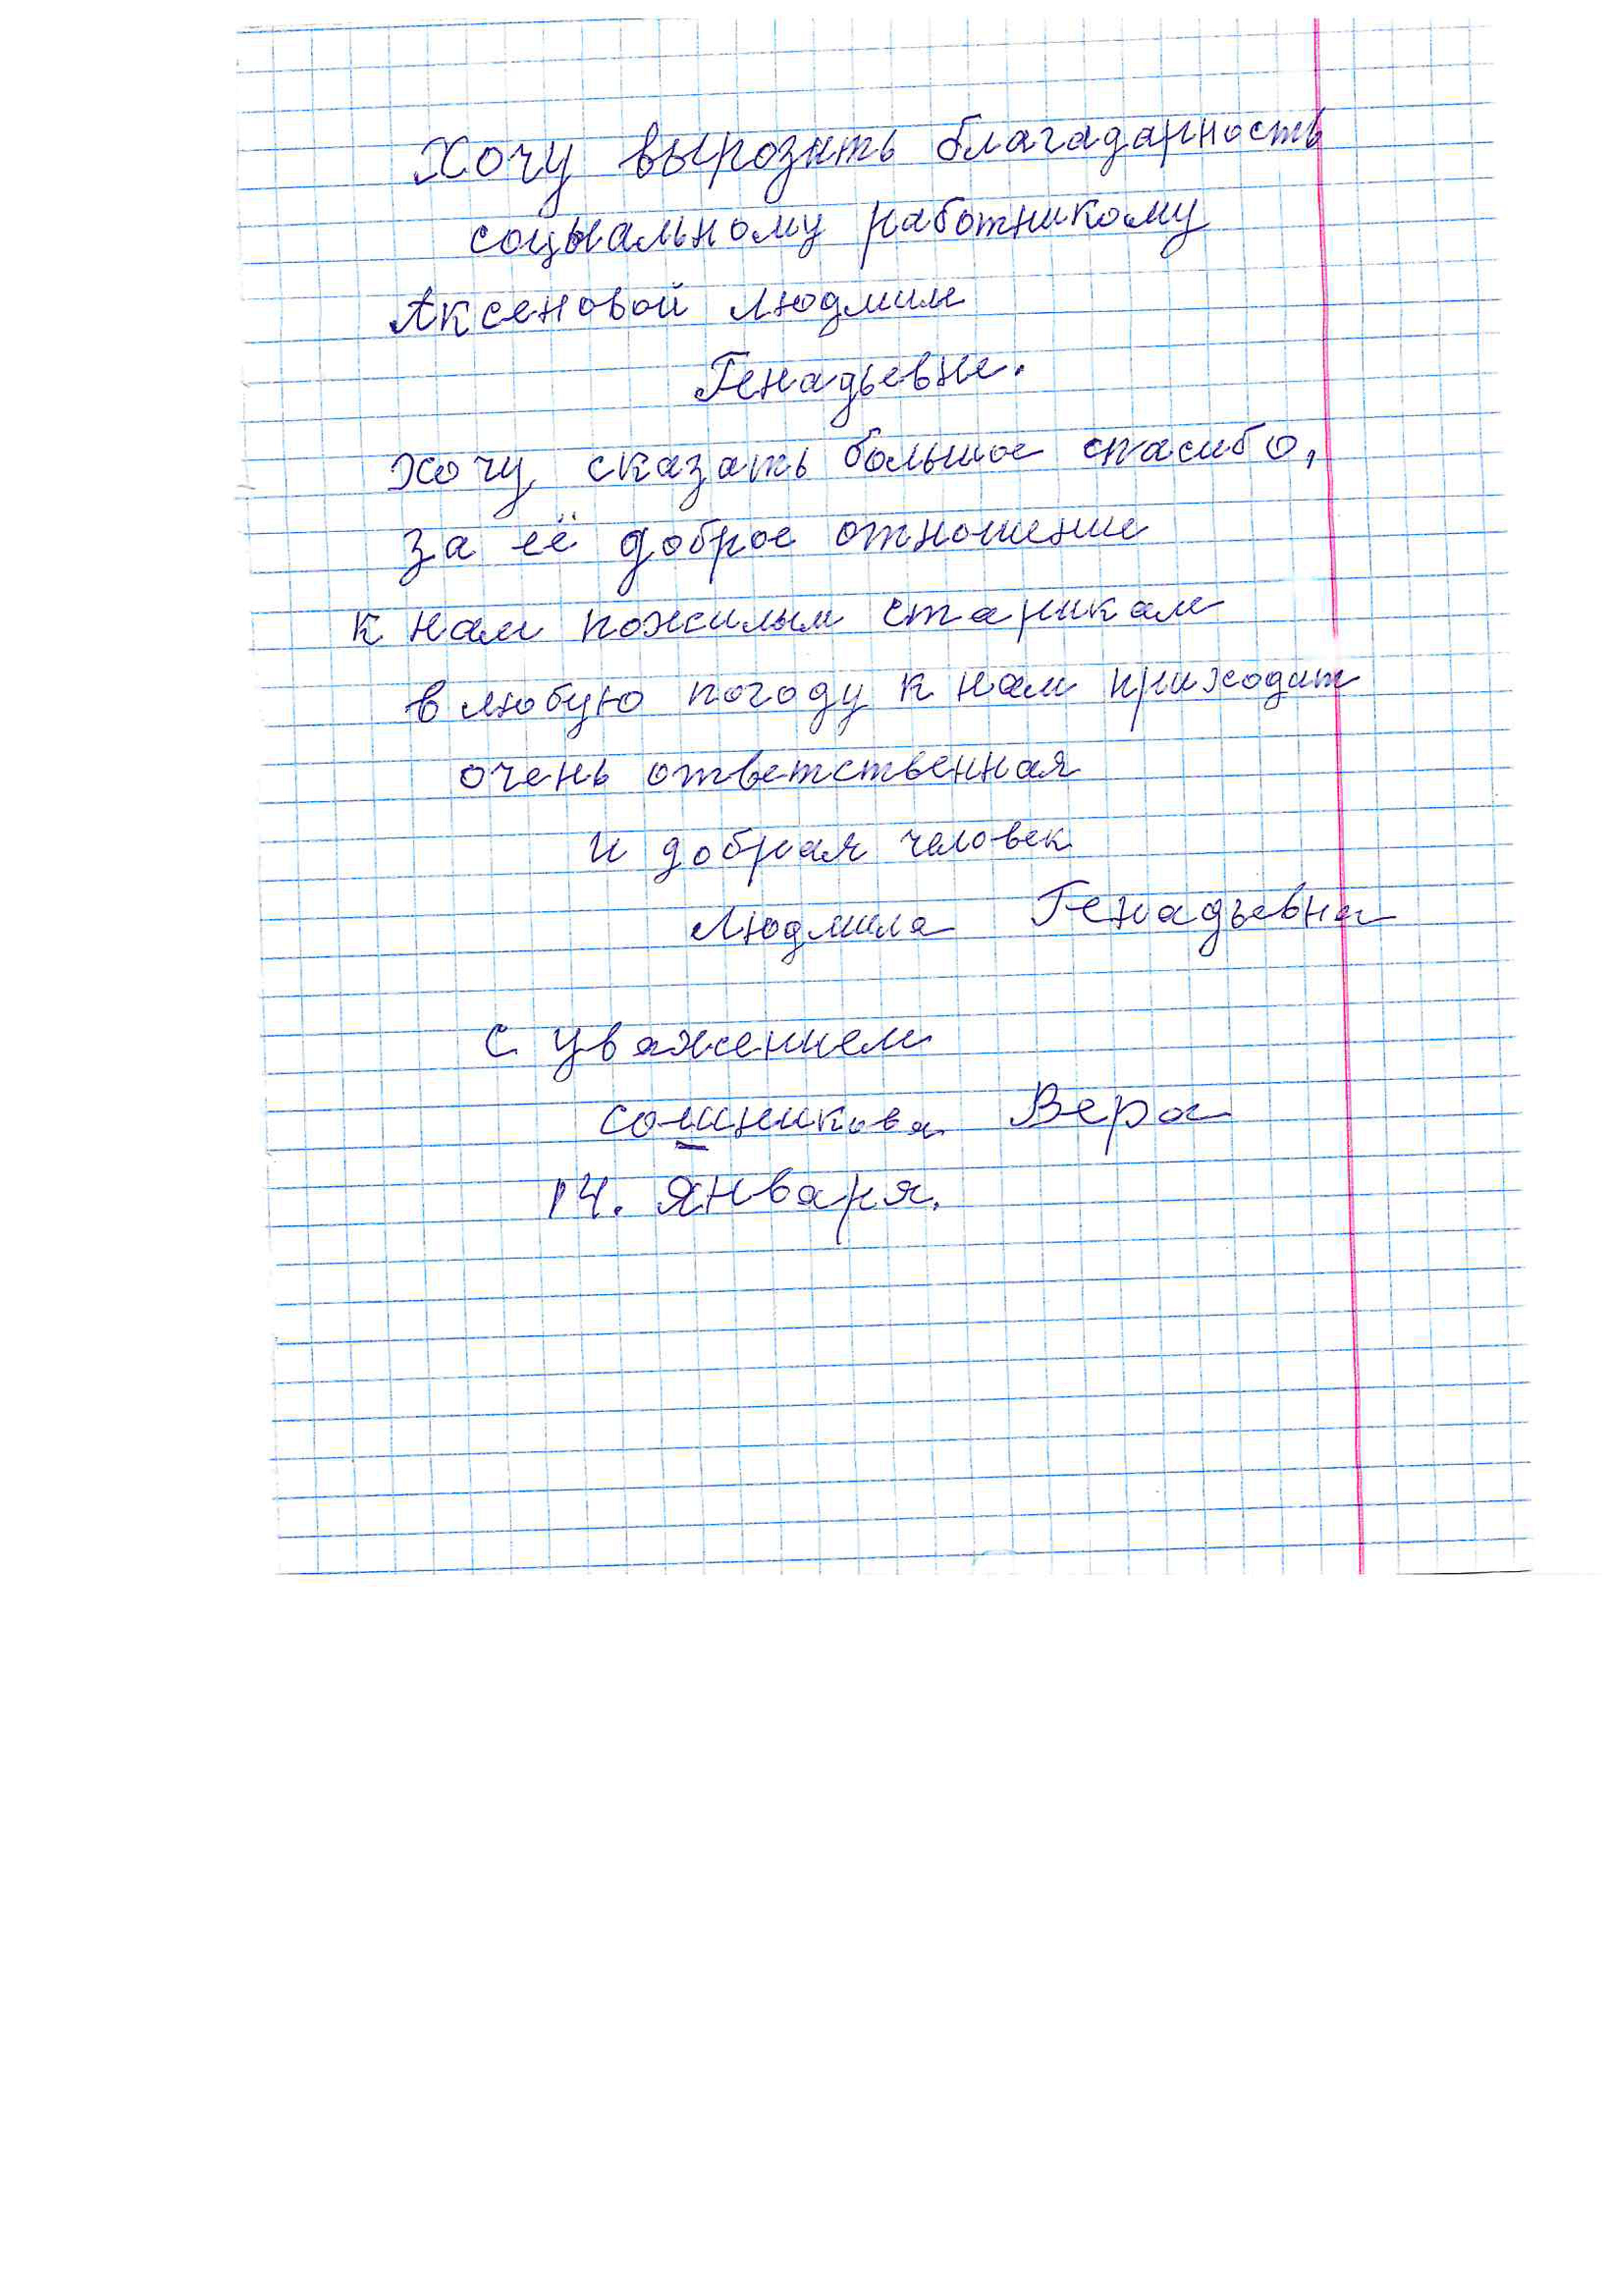 Хочу вырозить благадарность
социальному работникому
Аксеновой Людмиле
Генадьевне.
хочу сказать большое спасибо,
за её доброе отношение
к нам пожилым старикам
в любую погоду к нам приходит
очень ответственная
и добрая человек
Людмила Генадьевна
С уважением
сошникова Вера
14. Января.